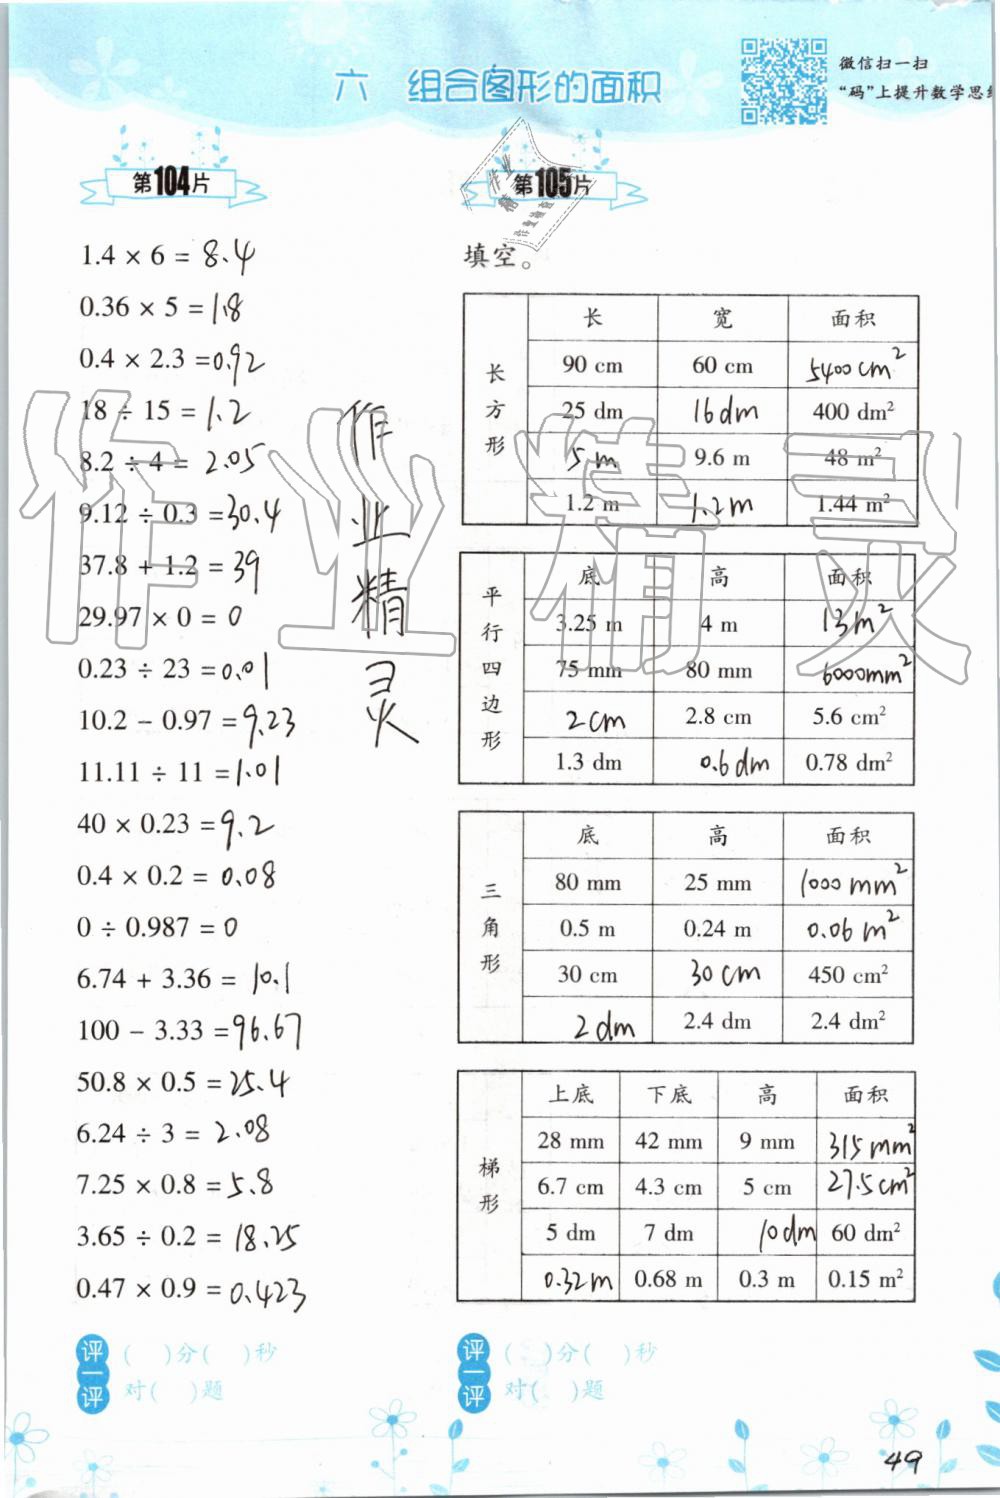 六 组合图形的面积
微信扫一扫
“码”上提升数学思维
第104片
1.4 × 6 = 8.4
0.36 × 5 = 1.8
0.4 × 2.3 = 0.92
18 ÷ 15 = 1.2
8.2 ÷ 4 = 2.05
9.12 ÷ 0.3 = 30.4
37.8 + 1.2 = 39
29.97 × 0 = 0
0.23 ÷ 23 = 0.01
10.2 − 0.97 = 9.23
11.11 ÷ 11 = 1.01
40 × 0.23 = 9.2
0.4 × 0.2 = 0.08
0 ÷ 0.987 = 0
6.74 + 3.36 = 10.1
100 − 3.33 = 96.67
50.8 × 0.5 = 25.4
6.24 ÷ 3 = 2.08
7.25 × 0.8 = 5.8
3.65 ÷ 0.2 = 18.25
0.47 × 0.9 = 0.423
评一评
( )分( )秒
对( )题
作业精灵
作业精灵
第105片
填空。
长方形
长 宽 面积
90 cm 60 cm 5400cm²
25 dm 16dm 400 dm²
5m 9.6 m 48 m²
1.2 m 1.2m 1.44 m²
平行四边形
底 高 面积
3.25 m 4 m 13m²
75 mm 80 mm 6000mm²
2cm 2.8 cm 5.6 cm²
1.3 dm 0.6dm 0.78 dm²
三角形
底 高 面积
80 mm 25 mm 1000mm²
0.5 m 0.24 m 0.06m²
30 cm 30cm 450 cm²
2dm 2.4 dm 2.4 dm²
梯形
上底 下底 高 面积
28 mm 42 mm 9 mm 315mm²
6.7 cm 4.3 cm 5 cm 27.5cm²
5 dm 7 dm 10dm 60 dm²
0.32m 0.68 m 0.3 m 0.15 m²
评一评
( )分( )秒
对( )题
49